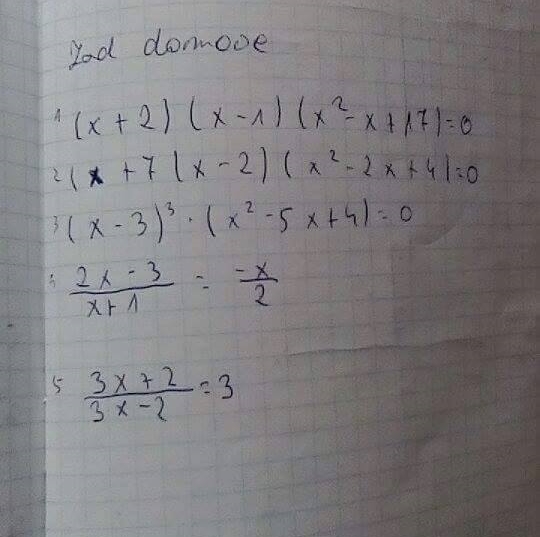 Zad domowe
1 (x + 2) (x - 1) (x² - x + 17) = 0
2 (x + 7 (x - 2) (x² - 2x + 4) = 0
3 (x - 3)³ · (x² - 5x + 4) = 0
4 2x - 3 / x + 1 = -x / 2
5 3x + 2 / 3x - 2 = 3